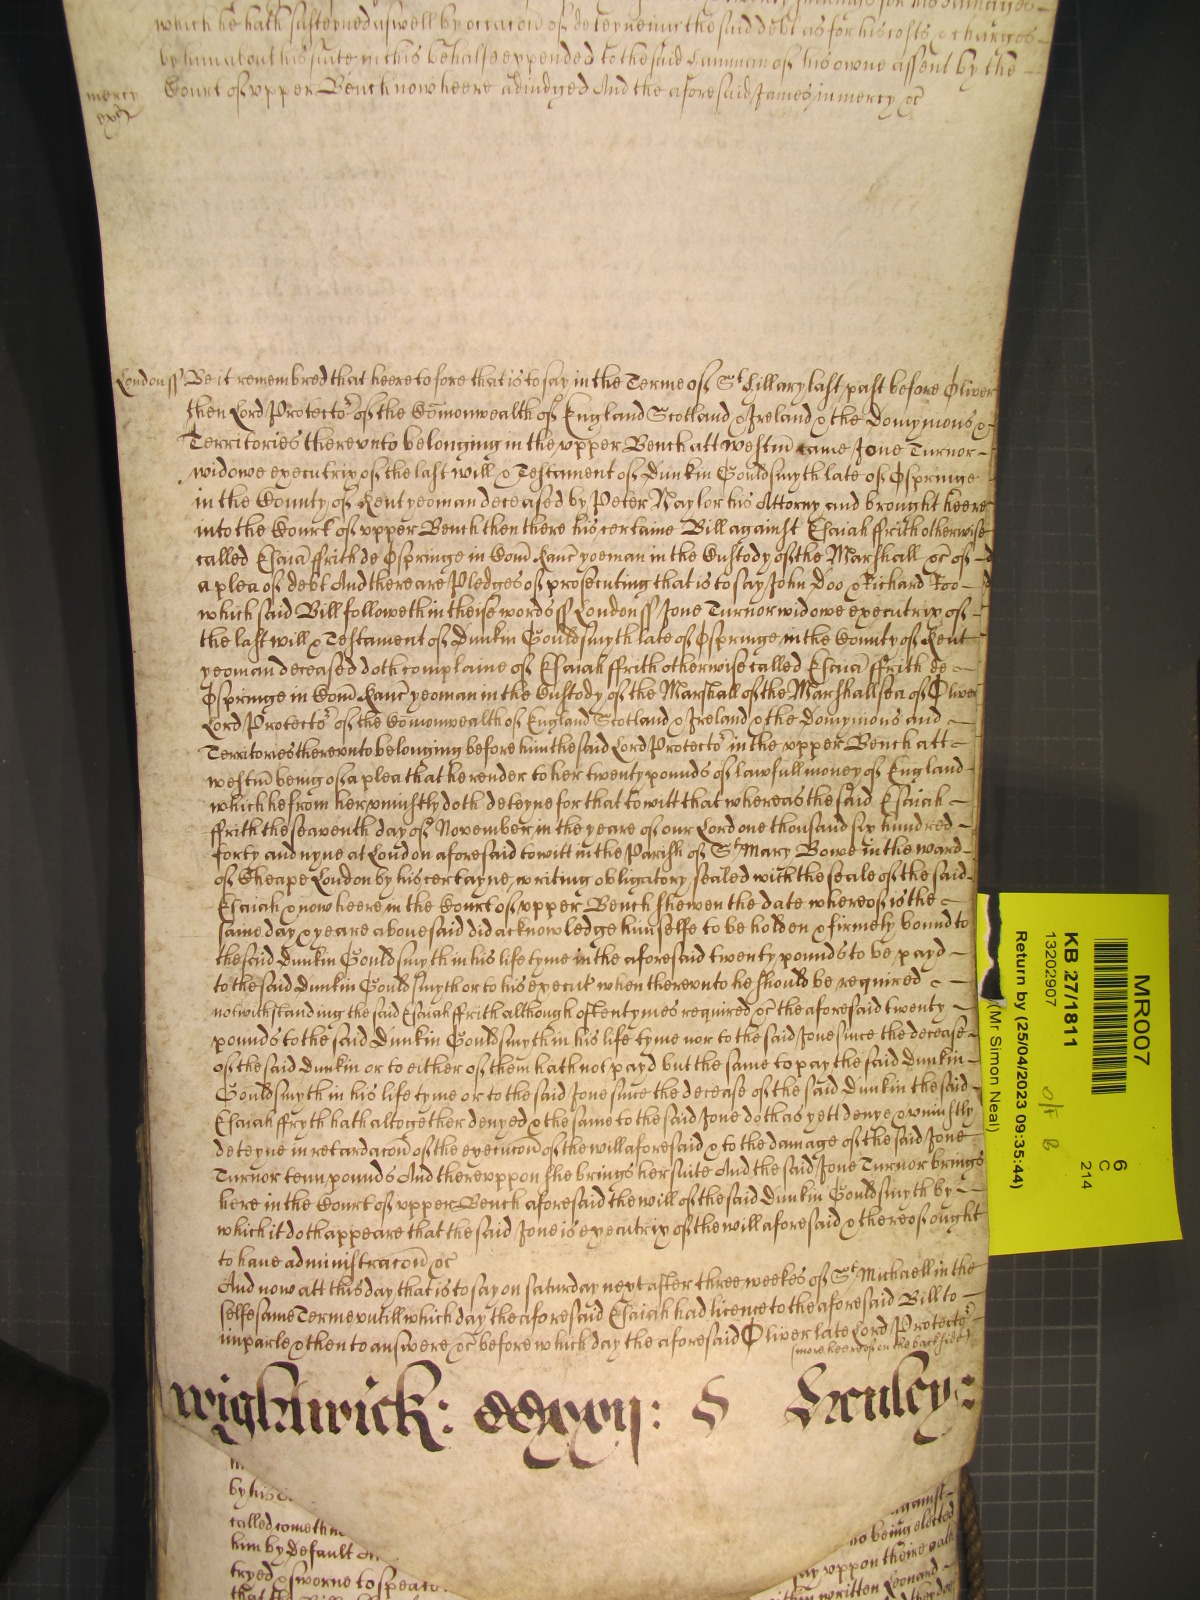 which he hath susteyned aswell by occacon of deteyneing the said debt as for his costs & charges
by him about his suite in this behalfe expended to the said of his owne assent by the
Court of upper Bench now heere adiudged And the aforesaid James in mercy &c
mercy
London ss Be it remembred that heeretofore that is to say in the Terme of St Hillary last past before Oliver
then Lord Protector of the Comonwealth of England Scotland & Ireland & the Domynions &
Territories therevnto belonging in the vpper Bench att Westm came Jone Turnor
widowe executrix of the last will & Testament of Dunkin Gouldsmyth late of Ospringe
in the County of Kent yeoman deceased by Peter Naylor his Attorny and brought heere
into the Court of vpper Bench then there his certaine Bill against Esaiah ffrith otherwise
called Esaia ffrith de Ospringe in Com Kanc yoeman in the Custody of the Marshall &c of
a plea of debt And there are Pledges of prosecuting that is to say John Doo & Richard Roo
which said Bill followeth in theise words ss London ss Jone Turnor widowe executrix of
the last will & Testament of Dunkin Gouldsmyth late of Ospringe in the County of Kent
yeoman deceased doth complaine of Esaiah ffrith otherwise called Esaia ffrith de
Ospringe in Com Kanc yeoman in the Custody of the Marshall of the Marshallsea of Oliver
Lord Protector of the Comonwealth of England Scotland & Ireland & the Domynions and
Territories therevnto belonging before him the said Lord Protector in the vpper Bench att
Westm being of a plea that he render to her twenty pounds of lawfull money of England
which he from her vniustly doth deteyne for that to witt that whereas the said Esaiah
ffrith the seaventh day of November in the yeare of our Lord one thousand six hundred
forty and nyne at London aforesaid to witt in the Parish of St Mary Bowe in the ward
of Cheape London by his certayne writing obligatory sealed with the seale of the said
Esaiah & now heere in the Court of vpper Bench shewen the date whereof is the
same day & yeare abovesaid did acknowledge himselfe to be holden & firmely bound to
the said Dunkin Gouldsmyth in his life tyme in the aforesaid twenty pounds to be payd
to the said Dunkin Gouldsmyth or to his execut when therevnto he should be required
notwithstanding the said Esaiah ffrith although oftentymes required &c the aforesaid twenty
pounds to the said Dunkin Gouldsmyth in his life tyme nor to the said Jone since the decease
of the said Dunkin or to either of them hath not payd but the same to pay the said Dunkin
Gouldsmyth in his life tyme or to the said Jone since the decease of the said Dunkin the said
Esaiah ffryth hath altogether denyed & the same to the said Jone doth as yett denye & vniustly
deteyne in retardacon of the execucon of the will aforesaid & to the damage of the said Jone
Turnor tenn pounds And therevppon she brings her suite And the said Jone Turnor brings
here in the Court of vpper Bench aforesaid the will of the said Dunkin Gouldsmyth by
which it doth appeare that the said Jone is executrix of the will aforesaid & thereof ought
to haue administracon &c
And now att this day that is to say on saturday next after three weekes of St Michaell in the
selfe same Terme vntill which day the aforesaid Esaiah had licence to the aforesaid Bill to
imparle & then to answere &c before which day the aforesaid Oliver late Lord Protector
(more heereof on the backside)
Wightwick: S Henley:
by his
called cometh
him by default
tryed & sworne to speake
against
being elected
say vppon theire oath
within written Leonard
MR007
6
C
214
KB 27/1811
13202907
Return by (25/04/2023 09:35:44)
(Mr Simon Neal)